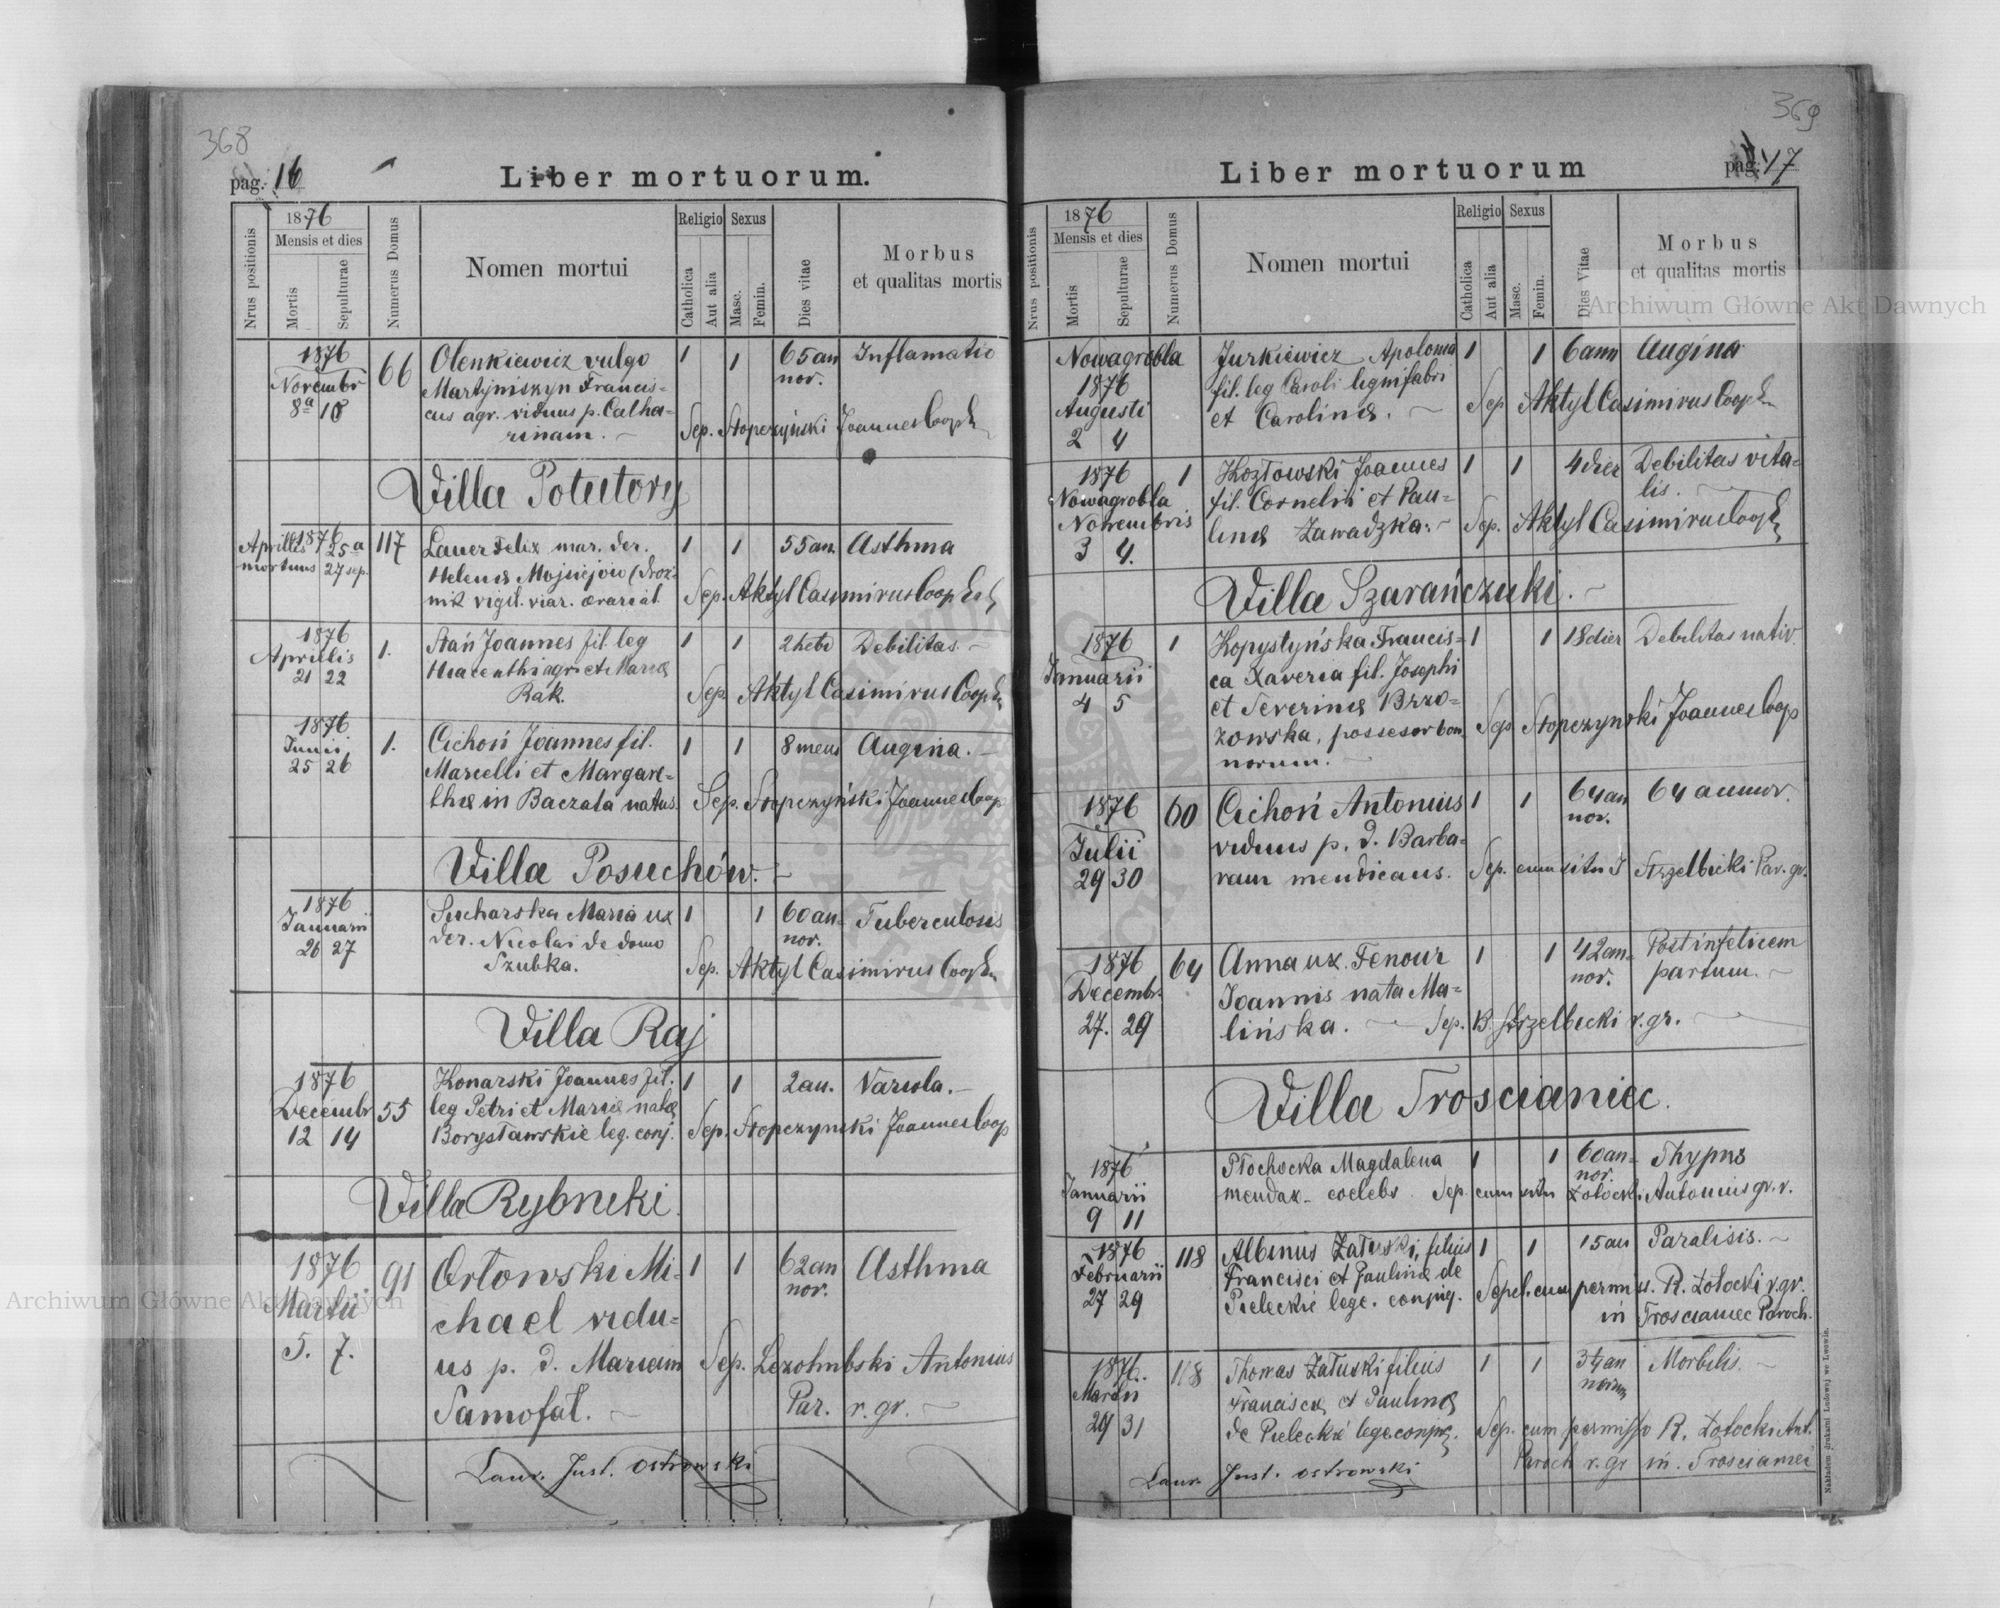 368
pag. 16
Liber mortuorum.
Nrus positionis
1876
Mensis et dies
Mortis
Sepulturae
Numerus Domus
Nomen mortui
Religio
Catholica
Aut alia
Sexus
Masc.
Femin.
Dies vitae
Morbus
et qualitas mortis
1876
Novembr
8a 10
66
Olenkiewicz vulgo
Martyniszyn Francis=
cus agr. viduus p. Catha=
rinam.
1 1
65 an
nor.
Inflamatio
Sep. Stopczyński Joannes Coop
Villa Potutory
1876
Aprilis 25a
mortuus 27 sep.
117
Lauer Felix mar. der.
Helenæ
vigil. viar. ærarial
1 1
55 an.
Asthma
Sep. Aktyl Casimirus Coop
1876
Aprilis
21 22
1.
Stań Joannes fil. leg
Hiacenthi agri et Mariæ
Rak.
1 1
2 hebd
Debilitas.
Sep. Aktyl Casimirus Coop
1876
Junii
25 26
1.
Cichoń Joannes fil.
Marcelli et Margare=
thæ in Baczala natus.
1 1
8 mens
Augina.
Sep. Stopczyński Joannes Coop
Villa Posuchów.
1876
Januarii
26 27
Sucharska Maria ux
der. Nicolai de domo
Szubka.
1 1
60 an=
nor.
Tuberculosis
Sep. Aktyl Casimirus Coop
Villa Raj
1876
Decembr
12 14
55
Konarski Joannes fil.
leg Petri et Mariæ natæ
Borysławskie leg. conj.
1 1
2 an.
Variola.
Sep. Stopczynski Joannes Coop
Villa Rybniki.
1876
Martii
5. 7.
91
Orłowski Mi=
chael vidu=
us p. d. Mariam
Samofał.
1 1
62 an
nor.
Asthma
Sep. Antonius
Par. r. gr.
Laur. Just. Ostrowski
369
pag. 17
Liber mortuorum
Nrus positionis
1876
Mensis et dies
Mortis
Sepulturae
Numerus Domus
Nomen mortui
Religio
Catholica
Aut alia
Sexus
Masc.
Femin.
Dies Vitae
Morbus
et qualitas mortis
Nowagrobla
1876
Augusti
2 4
Jurkiewicz Apolonia
fil. leg Caroli lignifabri
et Carolinæ.
1 1
6 ann
Augina
Sep Aktyl Casimirus Coop
1876
Nowagrobla
Novembris
3 4.
1
Kozłowski Joannes
fil. Cornelii et Pau=
linæ Zawadzka.
1 1
4 dier
Debilitas vita=
lis.
Sep. Aktyl Casimirus Coop
Villa Szarańczuki.
1876
Januarii
4 5
1
Kopystyńska Francis=
ca Xaveria fil. Josephi
et Severinæ Brzo=
zowska, possesor bon
norum.
1 1
18 dier
Debilitas nativ.
Sep Stopczynski Joannes Coop
1876
Julii
29 30
60
Cichoń Antonius
viduus p. d. Barba=
ram mendicans.
1 1
64 an
nor.
64 annor.
Sep. cum situ J Strzelbicki Par. gr.
1876
Decembr.
27. 29
64
Anna ux. Fenour
Joannis nata Ma=
lińska.
1 1
42 an=
nor.
Post infelicem
partum.
Sep. B. Strzelbicki r. gr.
Villa Troscianiec.
1876
Januarii
9 11
Płochocka Magdalena
mendax coelebs.
1 1
60 an=
nor.
Thypus
Sep cum situ Zołocki Antonius gr. r.
1876
Februarii
27 29
118
Albinus Załuski, filius
Francisci et Paulinæ de
Pieleckie lege. conjug.
1 1
15 an
Paralisis.
Sepel. cum permiss. R. Zołocki r. gr.
in Troscianiec Paroch.
1876.
Martii
29 31
118
Thomas Załuski filius
Francisci et Paulinæ
de Pielecké lege. conjug.
1 1
3 1/4 an
norum
Morbilis.
Sep. cum permisso R. Zołocki Ant.
Paroch r. gr in. Troscianiec
Laur. Just. Ostrowski
Nakładem drukarni Ludowej we Lwowie.
Archiwum Główne Akt Dawnych
Archiwum Główne Akt Dawnych